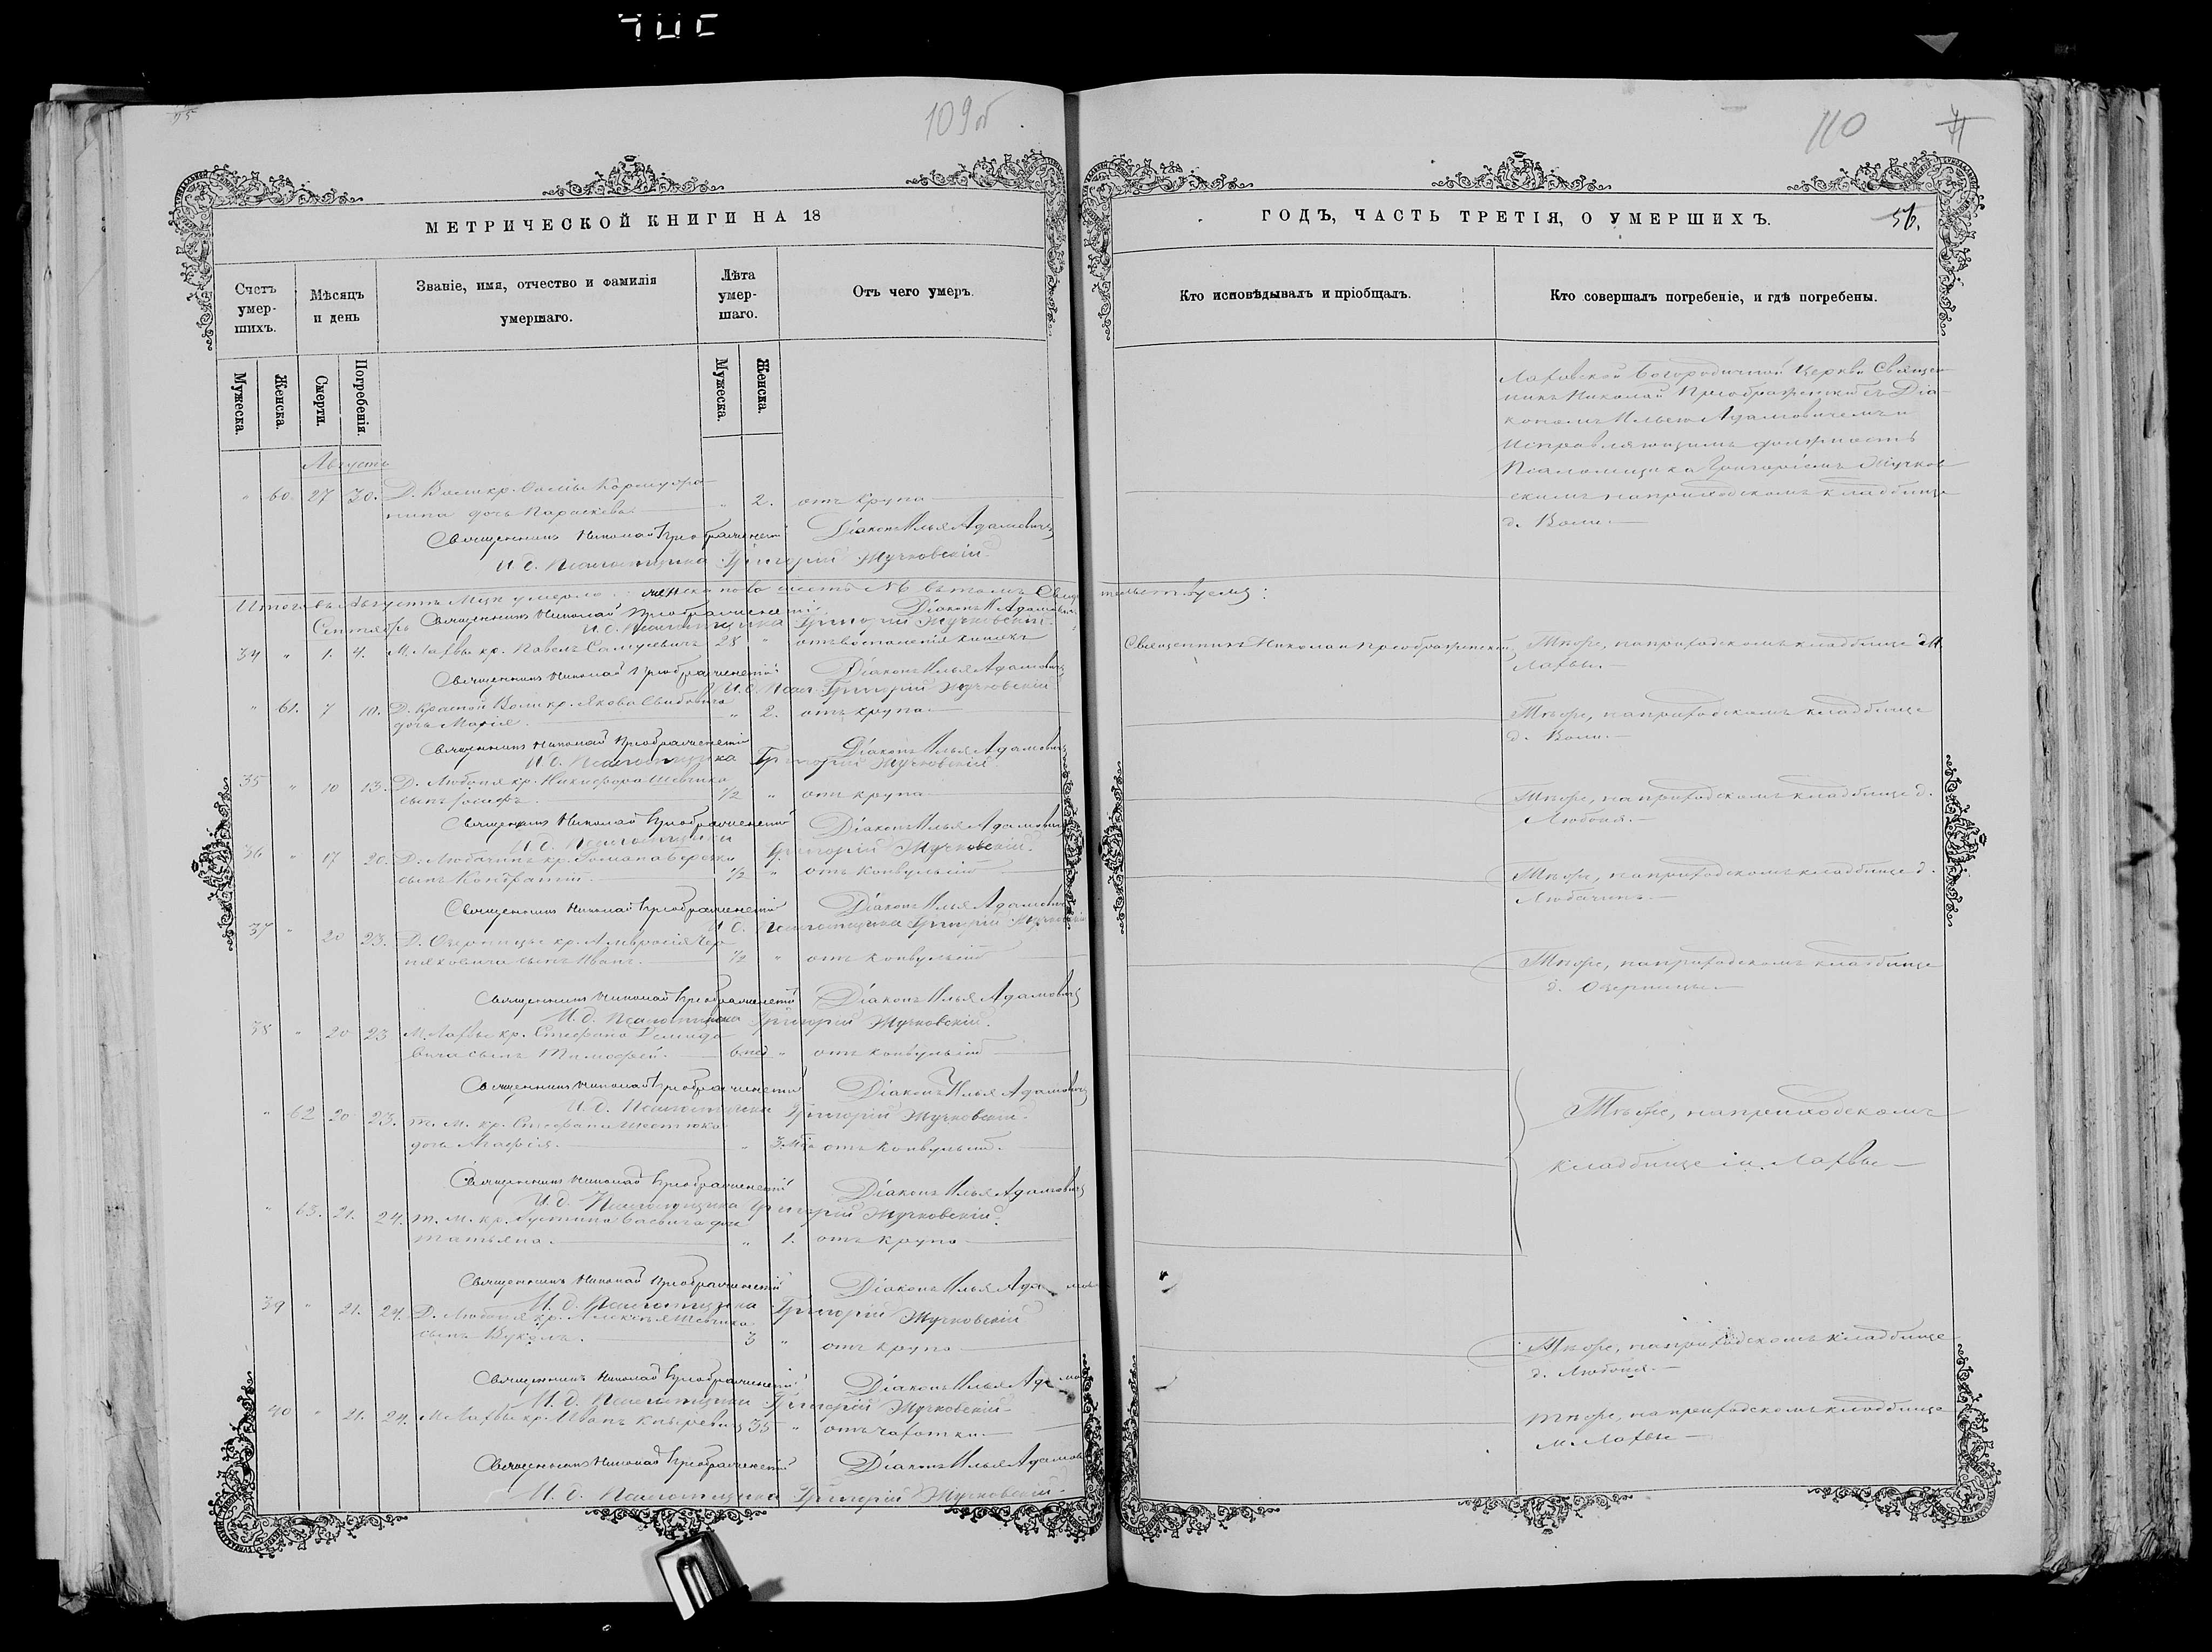 109об
МЕТРИЧЕСКОЙ КНИГИ НА 18
Счетъ умер-шихъ.
Мѣсяцъ и день
Званіе, имя, отчество и фамилія умершаго.
Лѣта умер-шаго.
Отъ чего умеръ.
Мужеска.
Женска.
Смерти.
Погребенія.
Мужеска.
Женска.
Августъ
" 60. 27 30. Д. Воли кр.
дочь Параскева " 2. отъ крупа
Священникъ Николай Преображенскій Діаконъ Илья Адамовичъ
И. д. Псаломщика Григорій Жучковскій
Итого въ Августѣ М-цѣ умерло
Священникъ Николай Преображенскій Діаконъ Илья Адамовичъ
Сентябрь И. д. Псаломщика Григорій Жучковскій
34 " 1. 4. М. Лахвы кр. Павелъ 28 " отъ воспаленія кишекъ
Священникъ Николай Преображенскій Діаконъ Илья Адамовичъ
И. д. Псал. Григорій Жучковскій
" 61. 7 10. Д. Красной Воли кр. Якова
дочь Марія " 2. отъ крупа
Священникъ Николай Преображенскій Діаконъ Илья Адамовичъ
И. д. Псаломщика Григорій Жучковскій
35 " 10 13. Д. Любоня кр. Никифора Шевчика
сынъ Іосифъ 1/2 " отъ крупа
Священникъ Николай Преображенскій Діаконъ Илья Адамовичъ
И. д. Псаломщика Григорій Жучковскій
36 " 17 20. Д. Любачинъ кр. Романа
сынъ Кондратій 1/2 " отъ конвульсій
Священникъ Николай Преображенскій Діаконъ Илья Адамовичъ
И. д. Псаломщика Григорій Жучковскій
37 " 20 23. Д. Озерницы кр. Амвросія Чер-
няковича сынъ Иванъ 1/2 " отъ конвульсій
Священникъ Николай Преображенскій Діаконъ Илья Адамовичъ
И. д. Псаломщика Григорій Жучковскій.
38 " 20 23 М. Лахвы кр. Стефана Демидо-
вича сынъ Тимофей 6 нед " отъ конвульсій
Священникъ Николай Преображенскій Діаконъ Илья Адамовичъ
И. д. Псаломщика Григорій Жучковскій.
" 62 20 23. т. м. кр. Стефана
дочь Агафія " 3 отъ конвульсій.
Священникъ Николай Преображенскій Діаконъ Илья Адамовичъ
И. д. Псаломщика Григорій Жучковскій.
" 63. 21. 24. т. м. кр.
Татьяна " 1. отъ крупа
Священникъ Николай Преображенскій Діаконъ Илья Адамовичъ
И. д. Псаломщика Григорій Жучковскій
39 " 21. 24. Д. Любоня кр. Алексѣя Шевчика
сынъ 3 " отъ крупа
Священникъ Николай Преображенскій Діаконъ Илья Адамовичъ
И. д. Псаломщика Григорій Жучковскій
40 " 21. 24. М. Лахвы кр. Иванъ 35 " отъ чахотки
Священникъ Николай Преображенскій Діаконъ Илья Адамовичъ
И. д. Псаломщика Григорій Жучковскій.
110
71
ГОДЪ, ЧАСТЬ ТРЕТІЯ, О УМЕРШИХЪ.
56.
Кто исповѣдывалъ и пріобщалъ.
Кто совершалъ погребеніе, и гдѣ погребены.
Лахвской Богородичной Церкви Священ-
никъ Николай Преображенскій съ Діа-
кономъ Ильею Адамовичемъ и
исправляющимъ должность
Псаломщика Григоріемъ Жучков-
скимъ на приходскомъ кладбище
д. Воли.
Священникъ Николай Преображенскій
Тѣже, на приходскомъ кладбище м.
Лахвы.
Тѣже, на приходскомъ кладбище
д. Воли.
Тѣже, на приходскомъ кладбище д.
Любоня.
Тѣже, на приходскомъ кладбище д.
Любачинъ.
Тѣже, на приходскомъ кладбище
д. Озерницы.
Тѣже, на приходскомъ
кладбище м. Лахвы
Тѣже, на приходскомъ кладбище
д. Любоня.
Тѣже, на приходскомъ кладбище
м. Лахвы